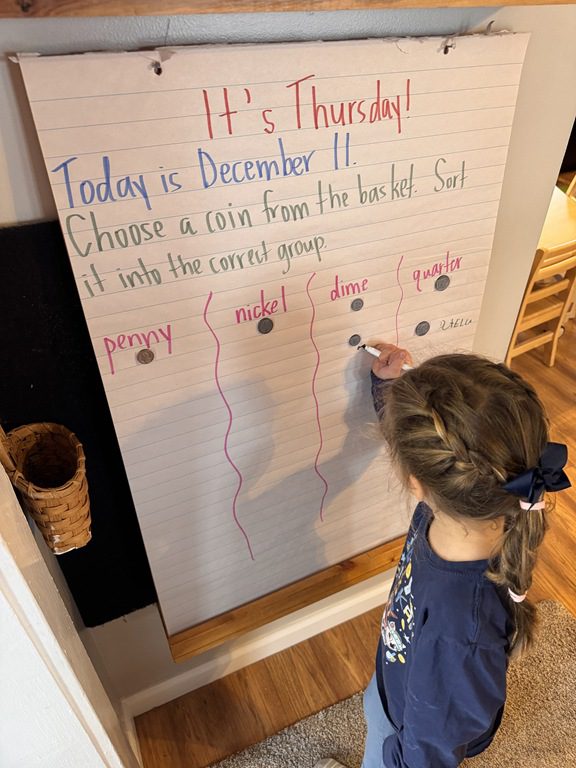 It's Thursday!
Today is December 11.
Choose a coin from the basket. Sort
it into the correct group.
penny nickel dime quarter